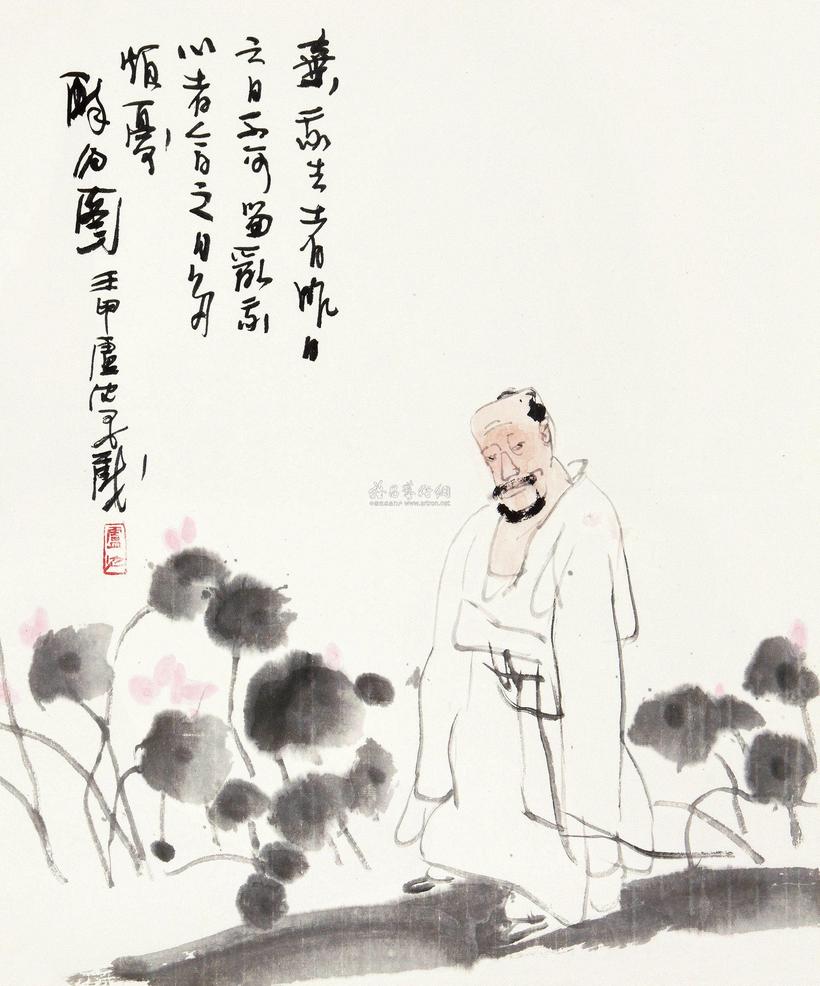 棄我去者昨日
之日不可留亂我
心者今日之日多
煩憂
醉白圖 壬申盧沉
盧沉
雅昌藝術網
www.artron.net